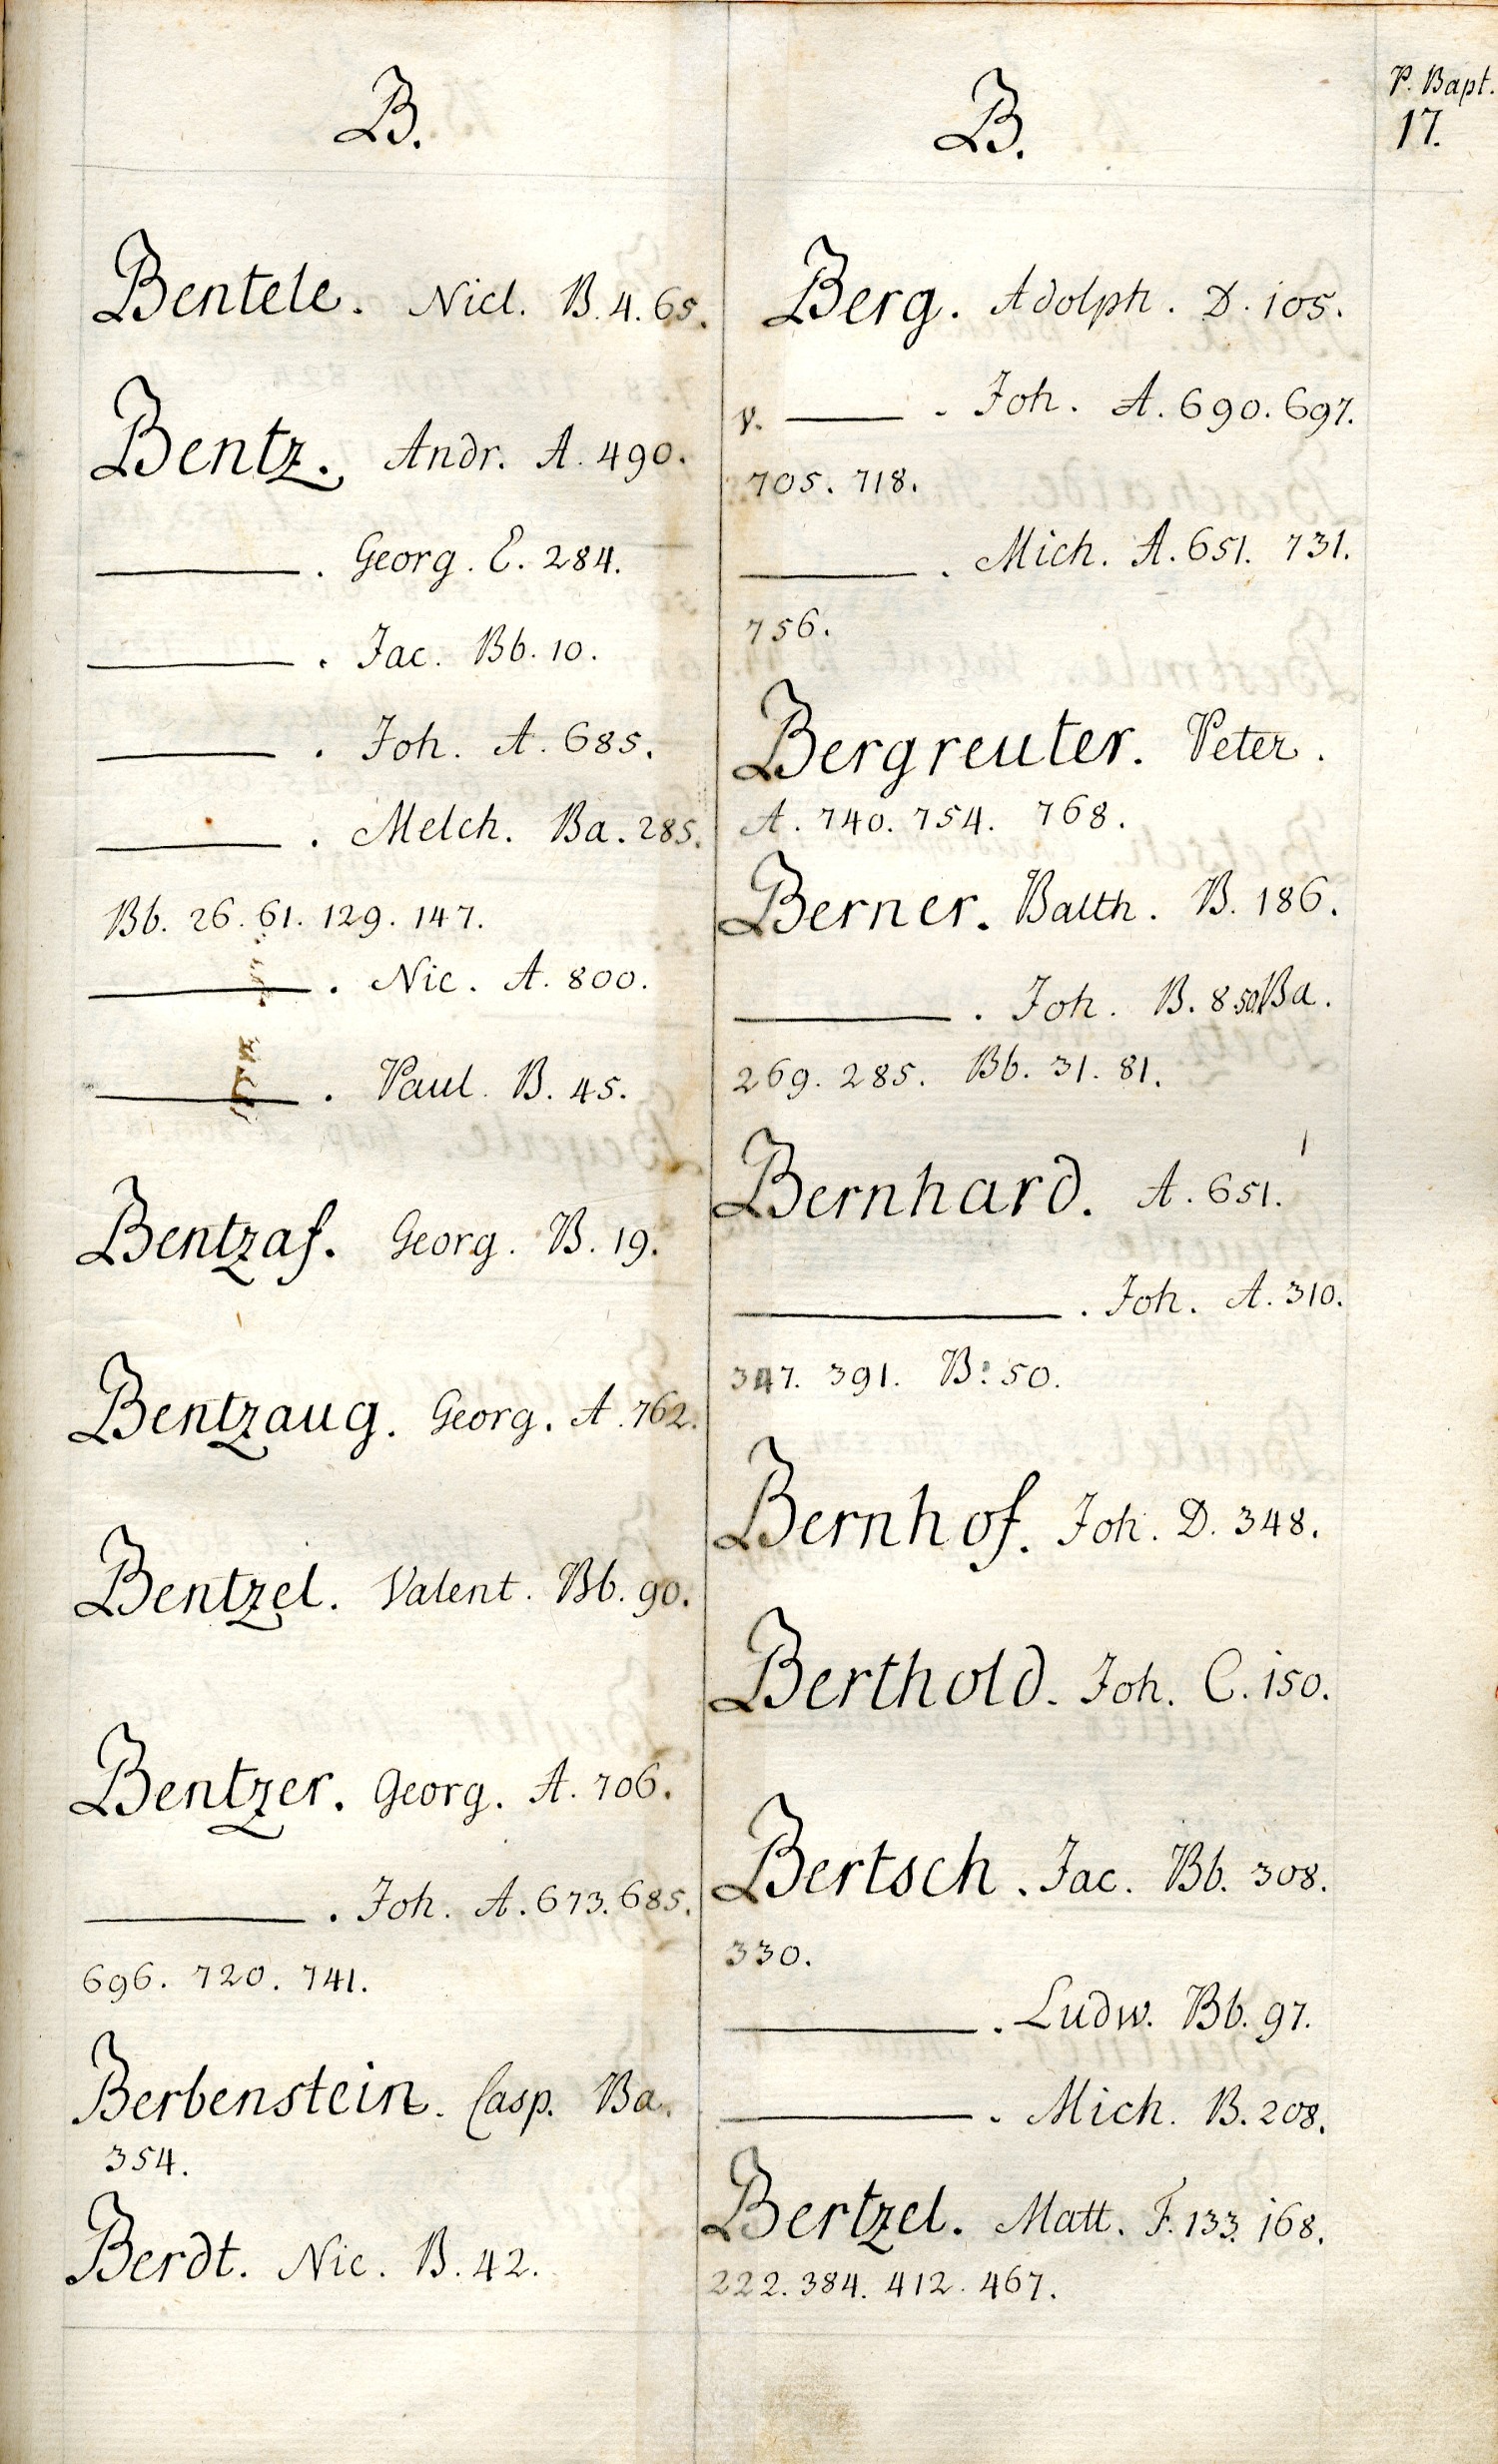 B.
Bentele. Nicl. B. 4. 65.
Bentz. Andr. A. 490.
———. Georg. E. 284.
———. Jac. Bb. 10.
———. Joh. A. 685.
———. Melch. Ba. 285.
Bb. 26. 61. 129. 147.
———. Nic. A. 800.
———. Paul. B. 45.
Bentzaf. Georg. B. 19.
Bentzaug. Georg. A. 762.
Bentzel. Valent. Bb. 90.
Bentzer. Georg. A. 706.
———. Joh. A. 673. 685.
696. 720. 741.
Berbenstein. Casp. Ba.
354.
Berdt. Nic. B. 42.
B.
Berg. Adolph. D. 105.
v. ———. Joh. A. 690. 697.
705. 718.
———. Mich. A. 651. 731.
756.
Bergreuter. Peter.
A. 740. 754. 768.
Berner. Balth. B. 186.
———. Joh. B. 850. Ba.
269. 285. Bb. 31. 81.
Bernhard. A. 651.
———. Joh. A. 310.
347. 391. B. 50.
Bernhof. Joh. D. 348.
Berthold. Joh. C. 150.
Bertsch. Jac. Bb. 308.
330.
———. Ludw. Bb. 97.
———. Mich. B. 208.
Bertzel. Matt. F. 133. 168.
222. 384. 412. 467.
P. Bapt.
17.